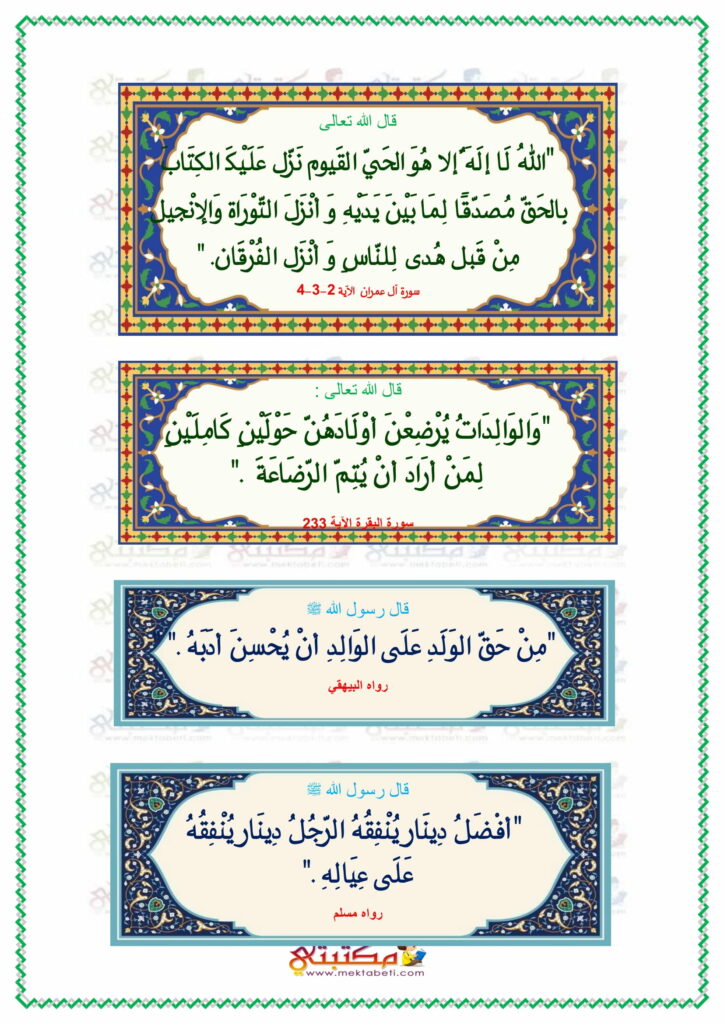 قال الله تعالى
"اللهُ لَا إلَهَ إلا هُوَ الحَيّ القَيوم نَزّل عَلَيْكَ الكِتَابَ
بالحَقّ مُصَدّقًا لِمَا بَيْنَ يَدَيْهِ وَ أنْزَلَ التّوْرَاة وَالإنْجيل
مِنْ قَبل هُدى لِلنّاسِ وَ أنْزَل الفُرْقَان. "
سورة آل عمران الآية 2-3-4
قال الله تعالى :
"وَالوَالِدَاتُ يُرْضِعْنَ أوْلَادَهُنّ حَوْلَيْنِ كَامِلَيْنِ
لِمَنْ أرَادَ أنْ يُتِمّ الرّضَاعَةَ ."
سورة البقرة الآية 233
قال رسول الله ﷺ
"مِنْ حَقّ الوَلَدِ عَلَى الوَالِدِ أنْ يُحْسِنَ أدَبَهُ ."
رواه البيهقي
قال رسول الله ﷺ
"أفْضَلُ دِينَار يُنْفِقُهُ الرّجُلُ دِينَار يُنْفِقُهُ
عَلَى عِيَالِهِ ."
رواه مسلم
مكتبتي
www.mektabeti.com